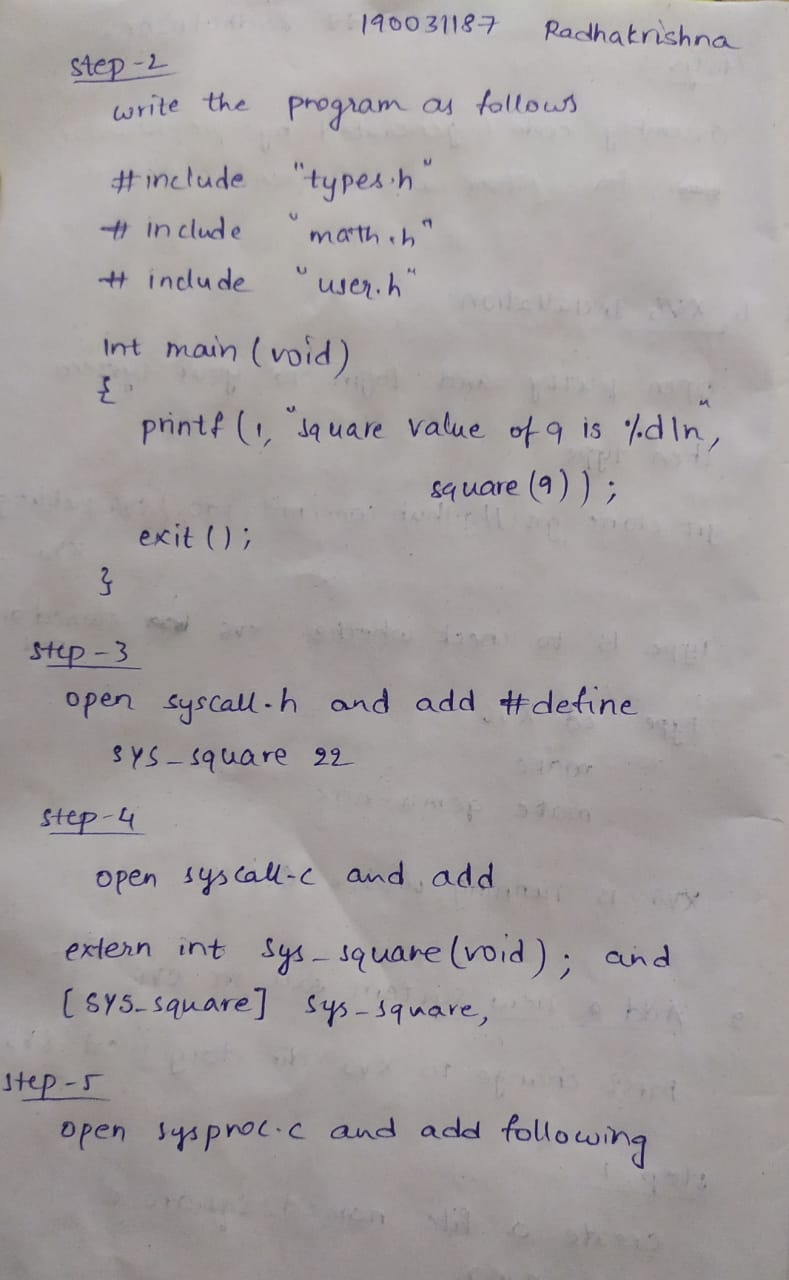 190031187 Radhakrishna
step-2
write the program as follows
#include "types.h"
# include "math.h"
# include "user.h"
int main (void)
{
printf (1, "square value of 9 is %d\n",
square (9) ) ;
exit () ;
}
step-3
open syscall.h and add #define
SYS_square 22
step-4
open syscall.c and add
extern int sys_square (void) ; and
[SYS_square] sys_square,
step-5
open sysproc.c and add following